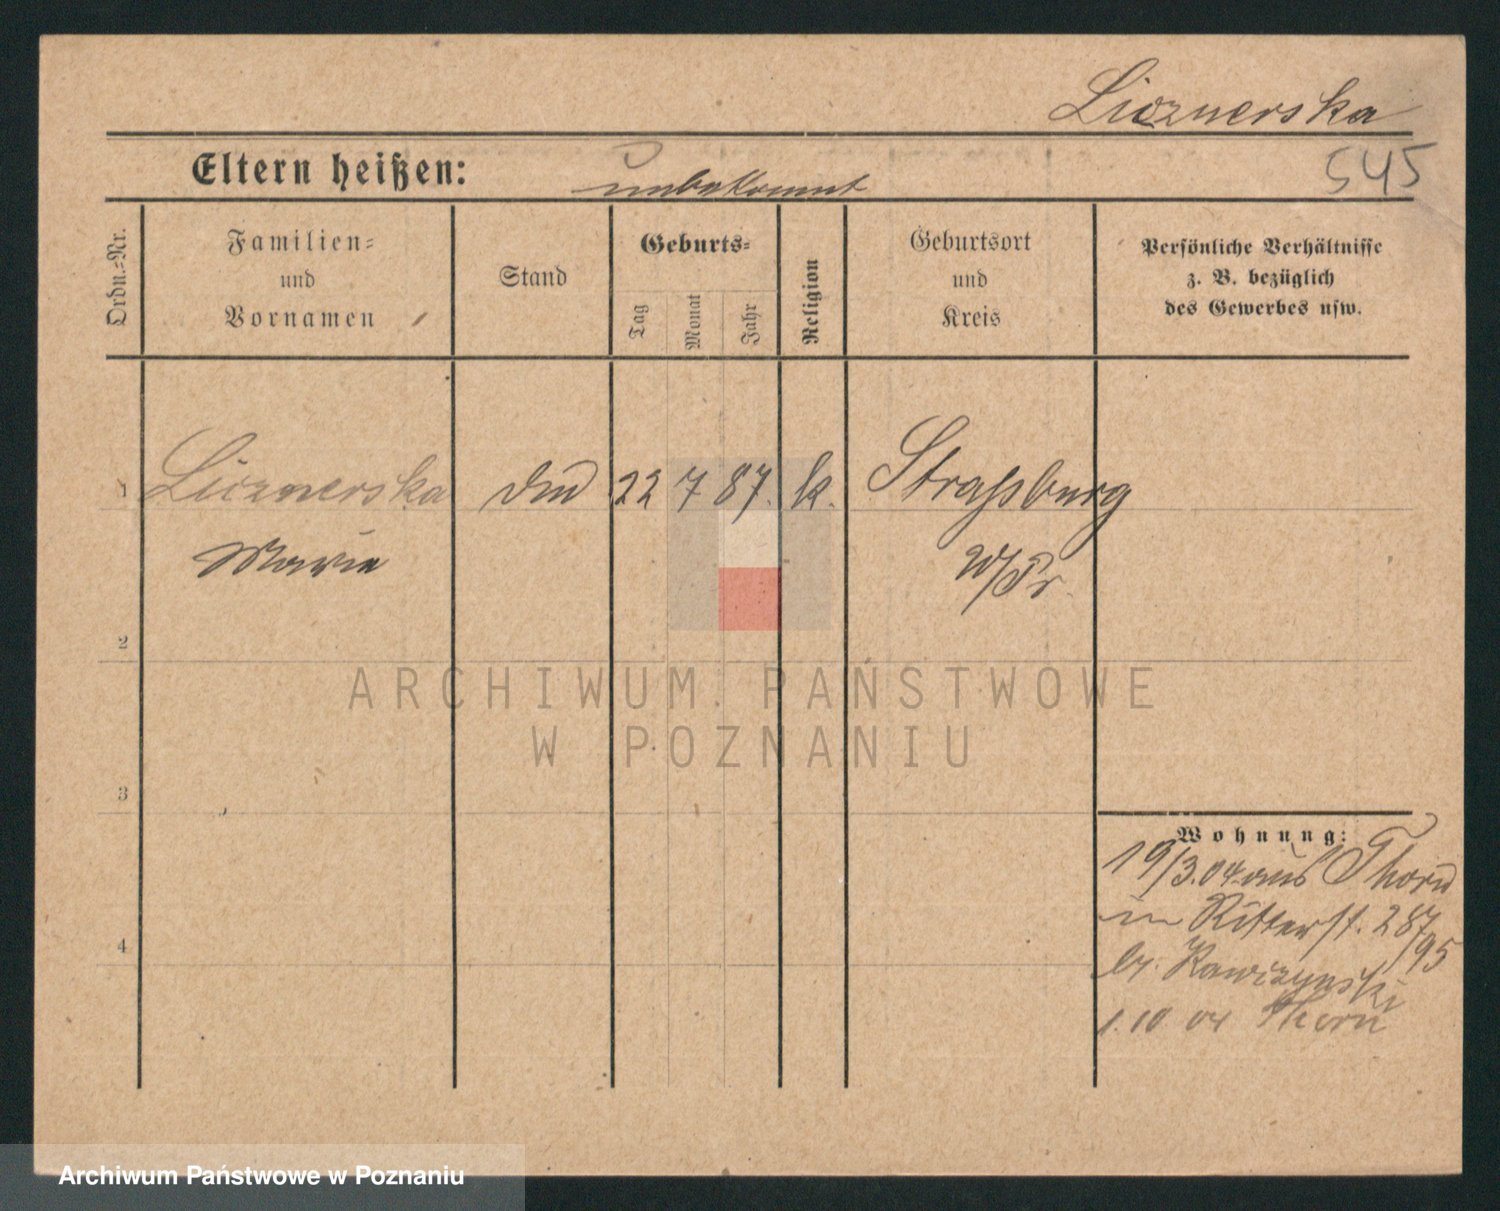 Licznerska
545
Eltern heißen: unbekannt
Ordn.-Nr.
Familien-
und
Vornamen
Stand
Geburts-
Tag
Monat
Jahr
Religion
Geburtsort
und
Kreis
Persönliche Verhältnisse
z. B. bezüglich
des Gewerbes usw.
1 Licznerska 22 7 87. k. Straßburg
Marie W/Pr.
2
3
4
Wohnung:
19/3.04 aus Thorn
in Ritterst. 287
/95
b/ Kawczynski
1.10 04 Thorn
ARCHIWUM PAŃSTWOWE
W POZNANIU
Archiwum Państwowe w Poznaniu